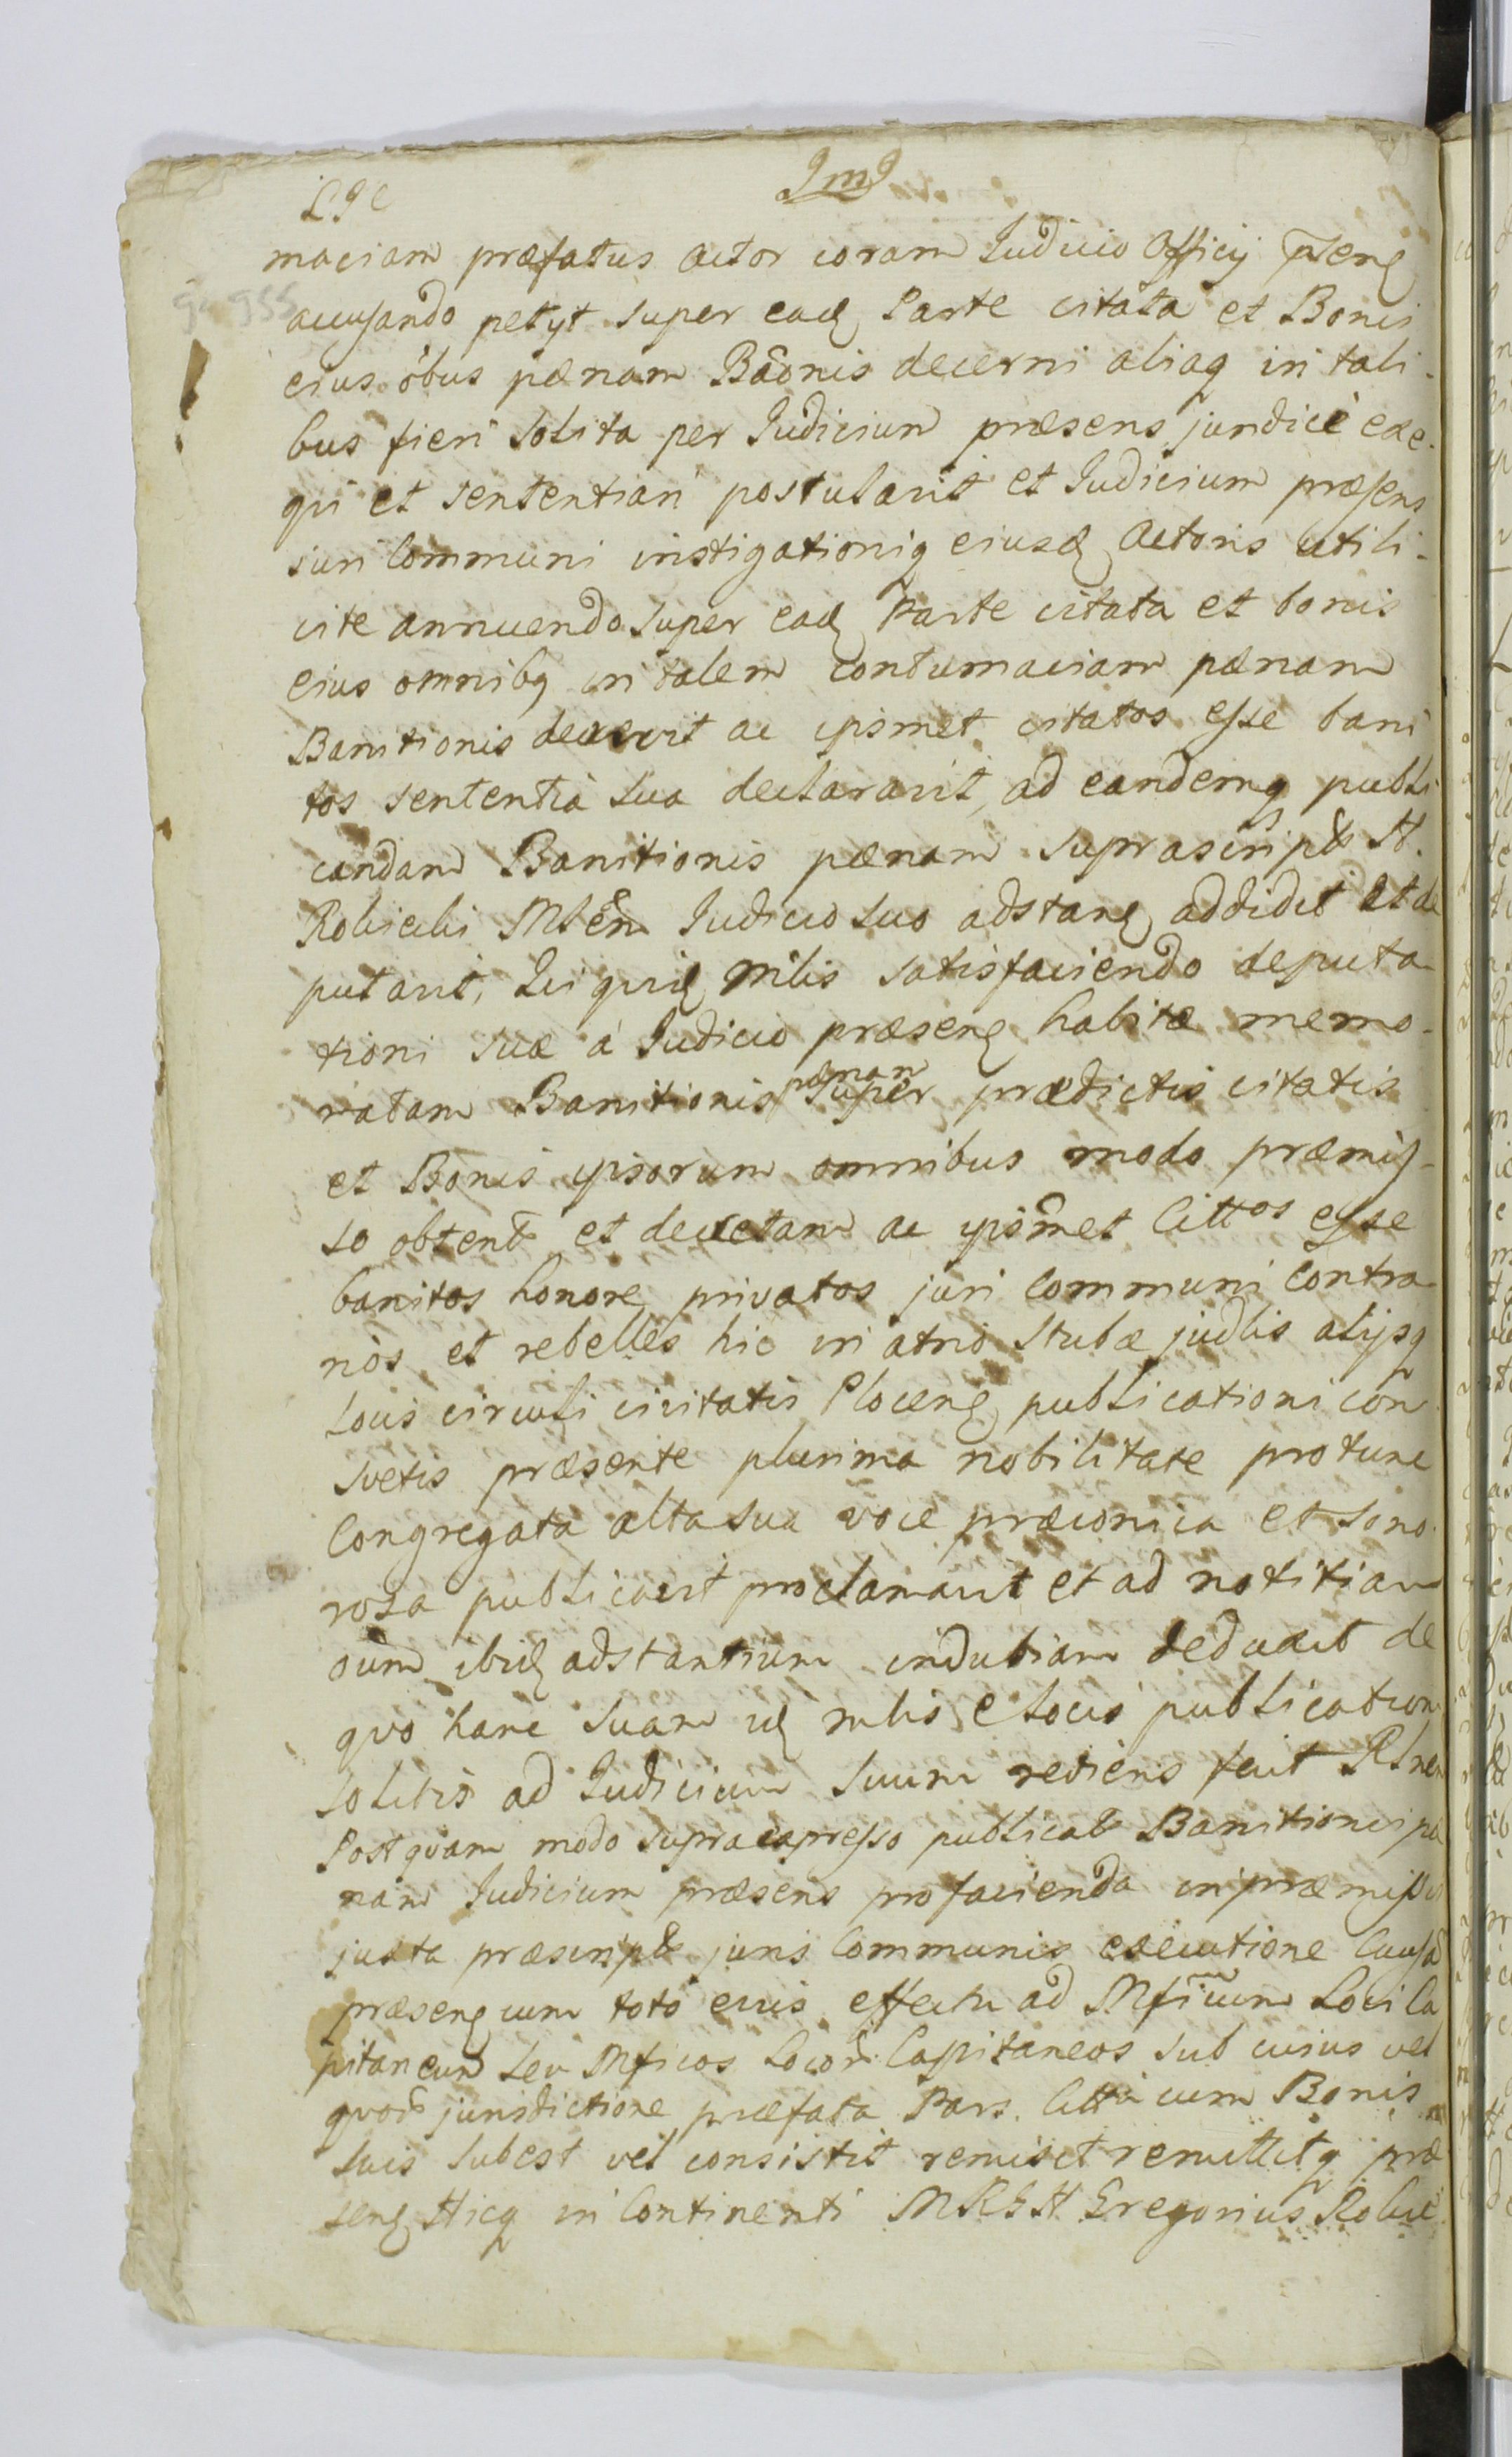 maciam præfatus actor coram Judicio Officij
accusando petyt super eadꝫ Parte citata et Bonis
eius õbus pænam Bãonis decerni aliaq in tali-
bus fieri solita per Judicium præsens juridicè exe-
qvi et sententiari postulavit et Judicium præsens
juri Communi instigationiq eiusdꝫ Actoris utili-
cite annuendo super eadꝫ Parte citata et bonis
eius omnibq in talem contumaciam pænam
Banitionis decrevit ac ipsmet citatos esse bani
tos sententià sua declaravit, ad eandemq publi
candam Banitionis pænam suprascript H.
Judicio suo adstanꝫ addidit et de
putavit, Qui qvidꝫ mlis satisfaciendo deputa
tioni suæ à Judicio præsenꝫ habitæ memo-
ratam Banitionis pænam super prædictis citatis
et Bonis ipsorum omnibus modo præmis-
so obtent et decretam ac ipsmet Cittos esse
banitos honore privatos juri Communi Contra
rios et rebelles hic in atrio Stubæ judlis alijsq
Locis circuli civitatis Plocenꝫ publicationi con
svetis præsente plurima nobilitate protunc
Congregata alta sua voce præconica et sono-
rosa publicavit proclamavit et ad notitiam
oium ibidꝫ adstantium indubiam deduxit de
qvo hanc suam idꝫ mlis e Locis publication
solitis ad Judicium suum rediens fecit Rlnem
Postqvam modo supra expresso publicat Banitionis pæ
nam Judicium præsens pro facienda in præmissis
juxta præscript juris Communis executione Causã
præsenꝫ cum toto eius effectu ad Mficum Loci Ca
pitaneum seu Mficos Locor Capitaneos sub cuius vel
qvor jurisdictione præfata Pars Citta cum Bonis
suis subest vel consistit remisit remittitq præ
senꝫ Hicq in Continenti MRGH Gregorius Robie